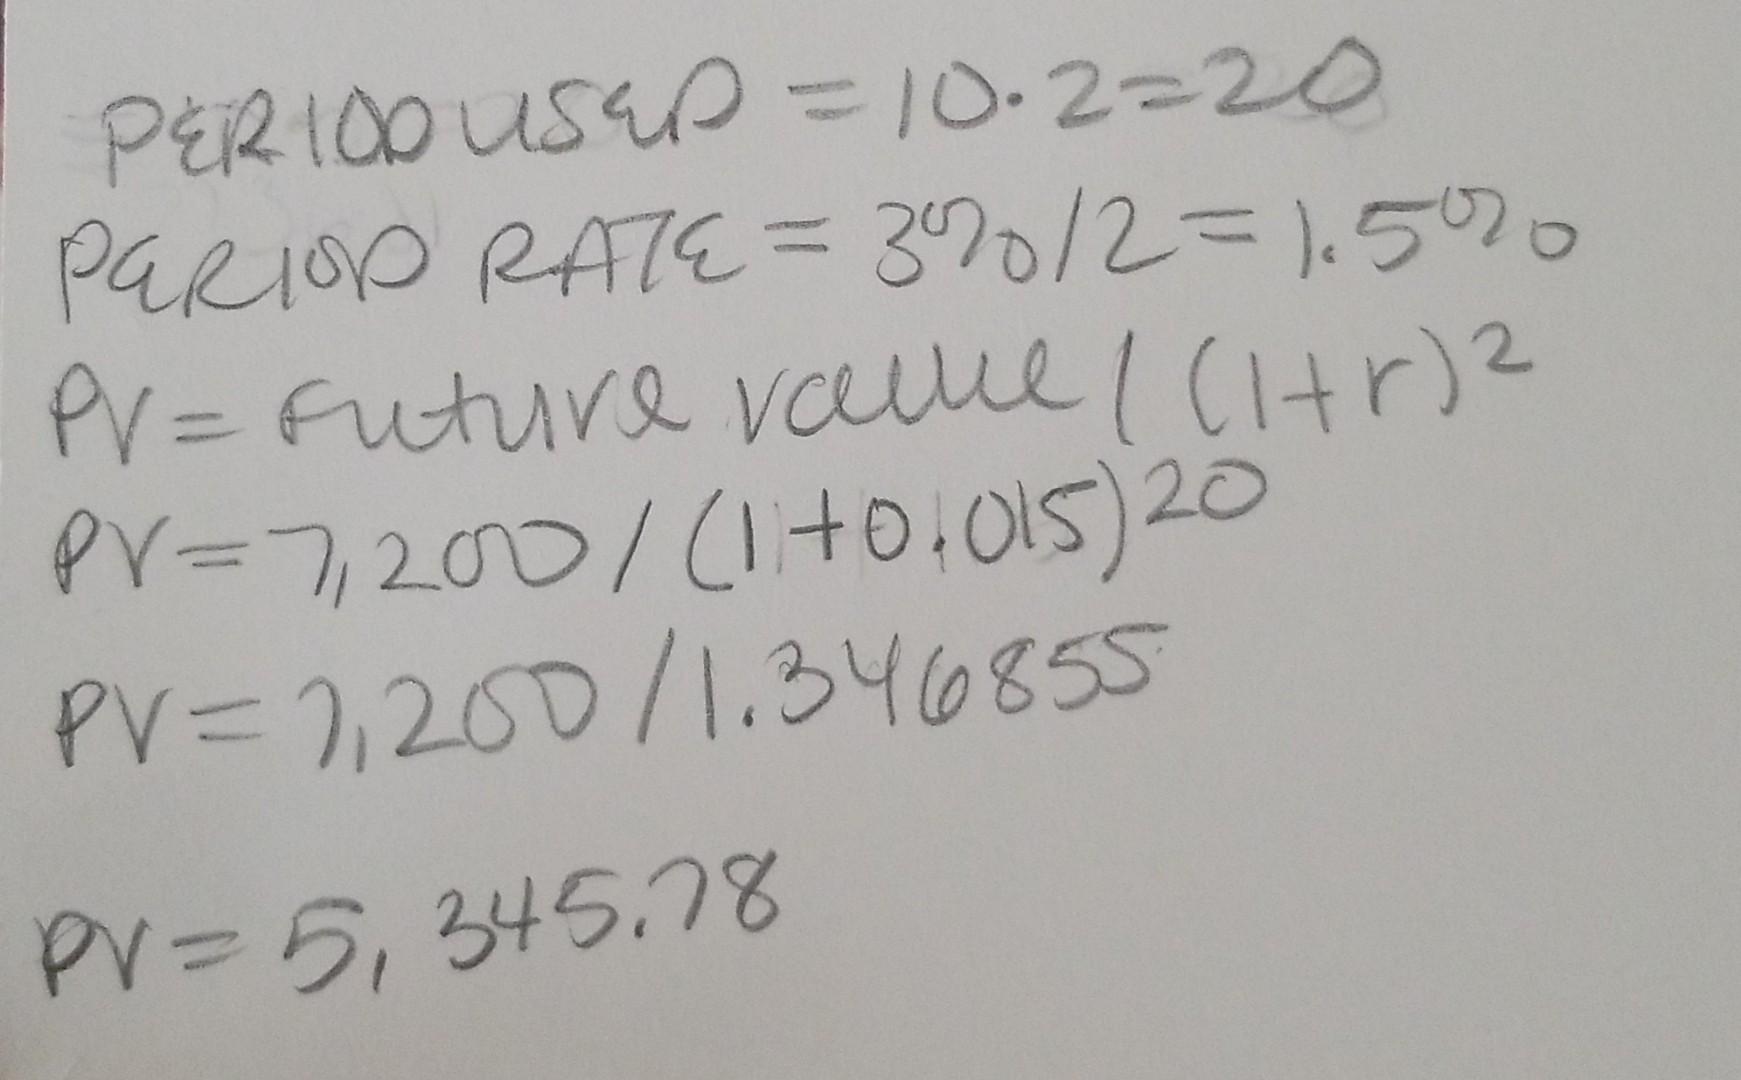 PERIOD USED = 10·2=20
PERIOD RATE = 3%/2 = 1.5%
PV = Future value / (1+r)²
PV = 7,200 / (1+0.015)²⁰
PV = 7,200 / 1.346855
PV = 5,345.78